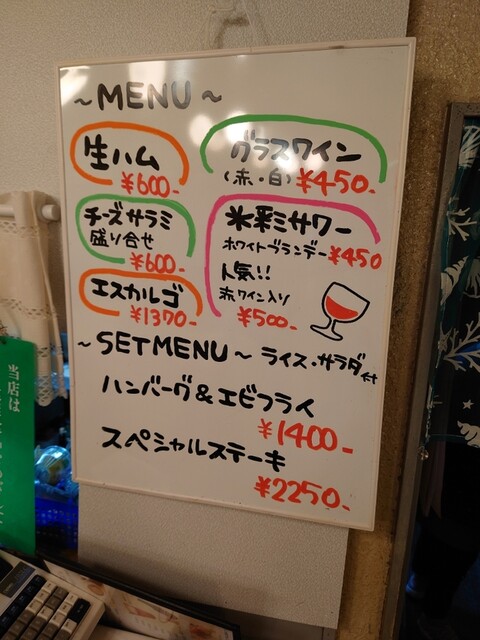 ~MENU~
生ハム
¥600-
チーズサラミ
盛り合せ
¥600-
エスカルゴ
¥1370-
グラスワイン
(赤・白) ¥450-
米彩ミサワー
ホワイトブランデー ¥450
人気!!
赤ワイン入り
¥500-
~SETMENU~ ライス・サラダ付
ハンバーグ&エビフライ
¥1400-
スペシャルステーキ
¥2250-
当店は